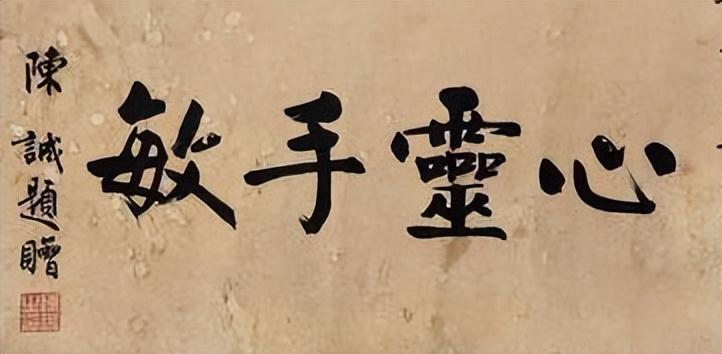 心靈手敏
陳誠題贈